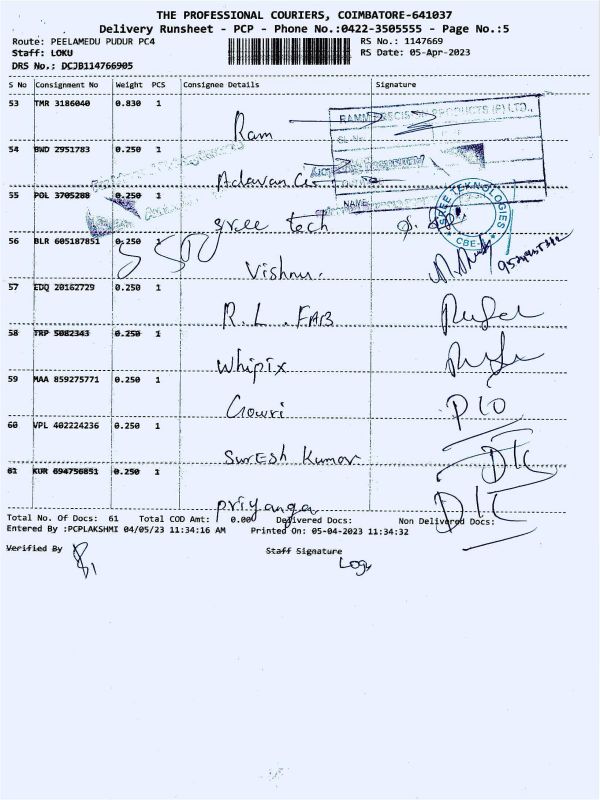 THE PROFESSIONAL COURIERS, COIMBATORE-641037
Delivery Runsheet - PCP - Phone No.:0422-3505555 - Page No.:5
Route: PEELAMEDU PUDUR PC4 RS No.: 1147669
Staff: LOKU RS Date: 05-Apr-2023
DRS No.: DCJB114766905
S No Consignment No Weight PCS Consignee Details Signature
53 TMR 3186040 0.830 1
Ram
54 BWD 2951783 0.250 1
Adavan.
55 POL 3705288 0.250 1
gree tech
56 BLR 605187851 0.250 1
Vishnu.
57 EDQ 20162729 0.250 1
R.L. FAB
58 TRP 5082343 0.250 1
Whipix
59 MAA 859275771 0.250 1
Gowri
60 VPL 402224236 0.250 1
Suresh Kumar
61 KUR 694756851 0.250 1
priyanga
NAME
TEKNOLOGIES
CBE
Total No. Of Docs: 61 Total COD Amt: 0.00 Delivered Docs: Non Delivered Docs:
Entered By :PCPLAKSHMI 04/05/23 11:34:16 AM Printed On: 05-04-2023 11:34:32
Verified By Staff Signature